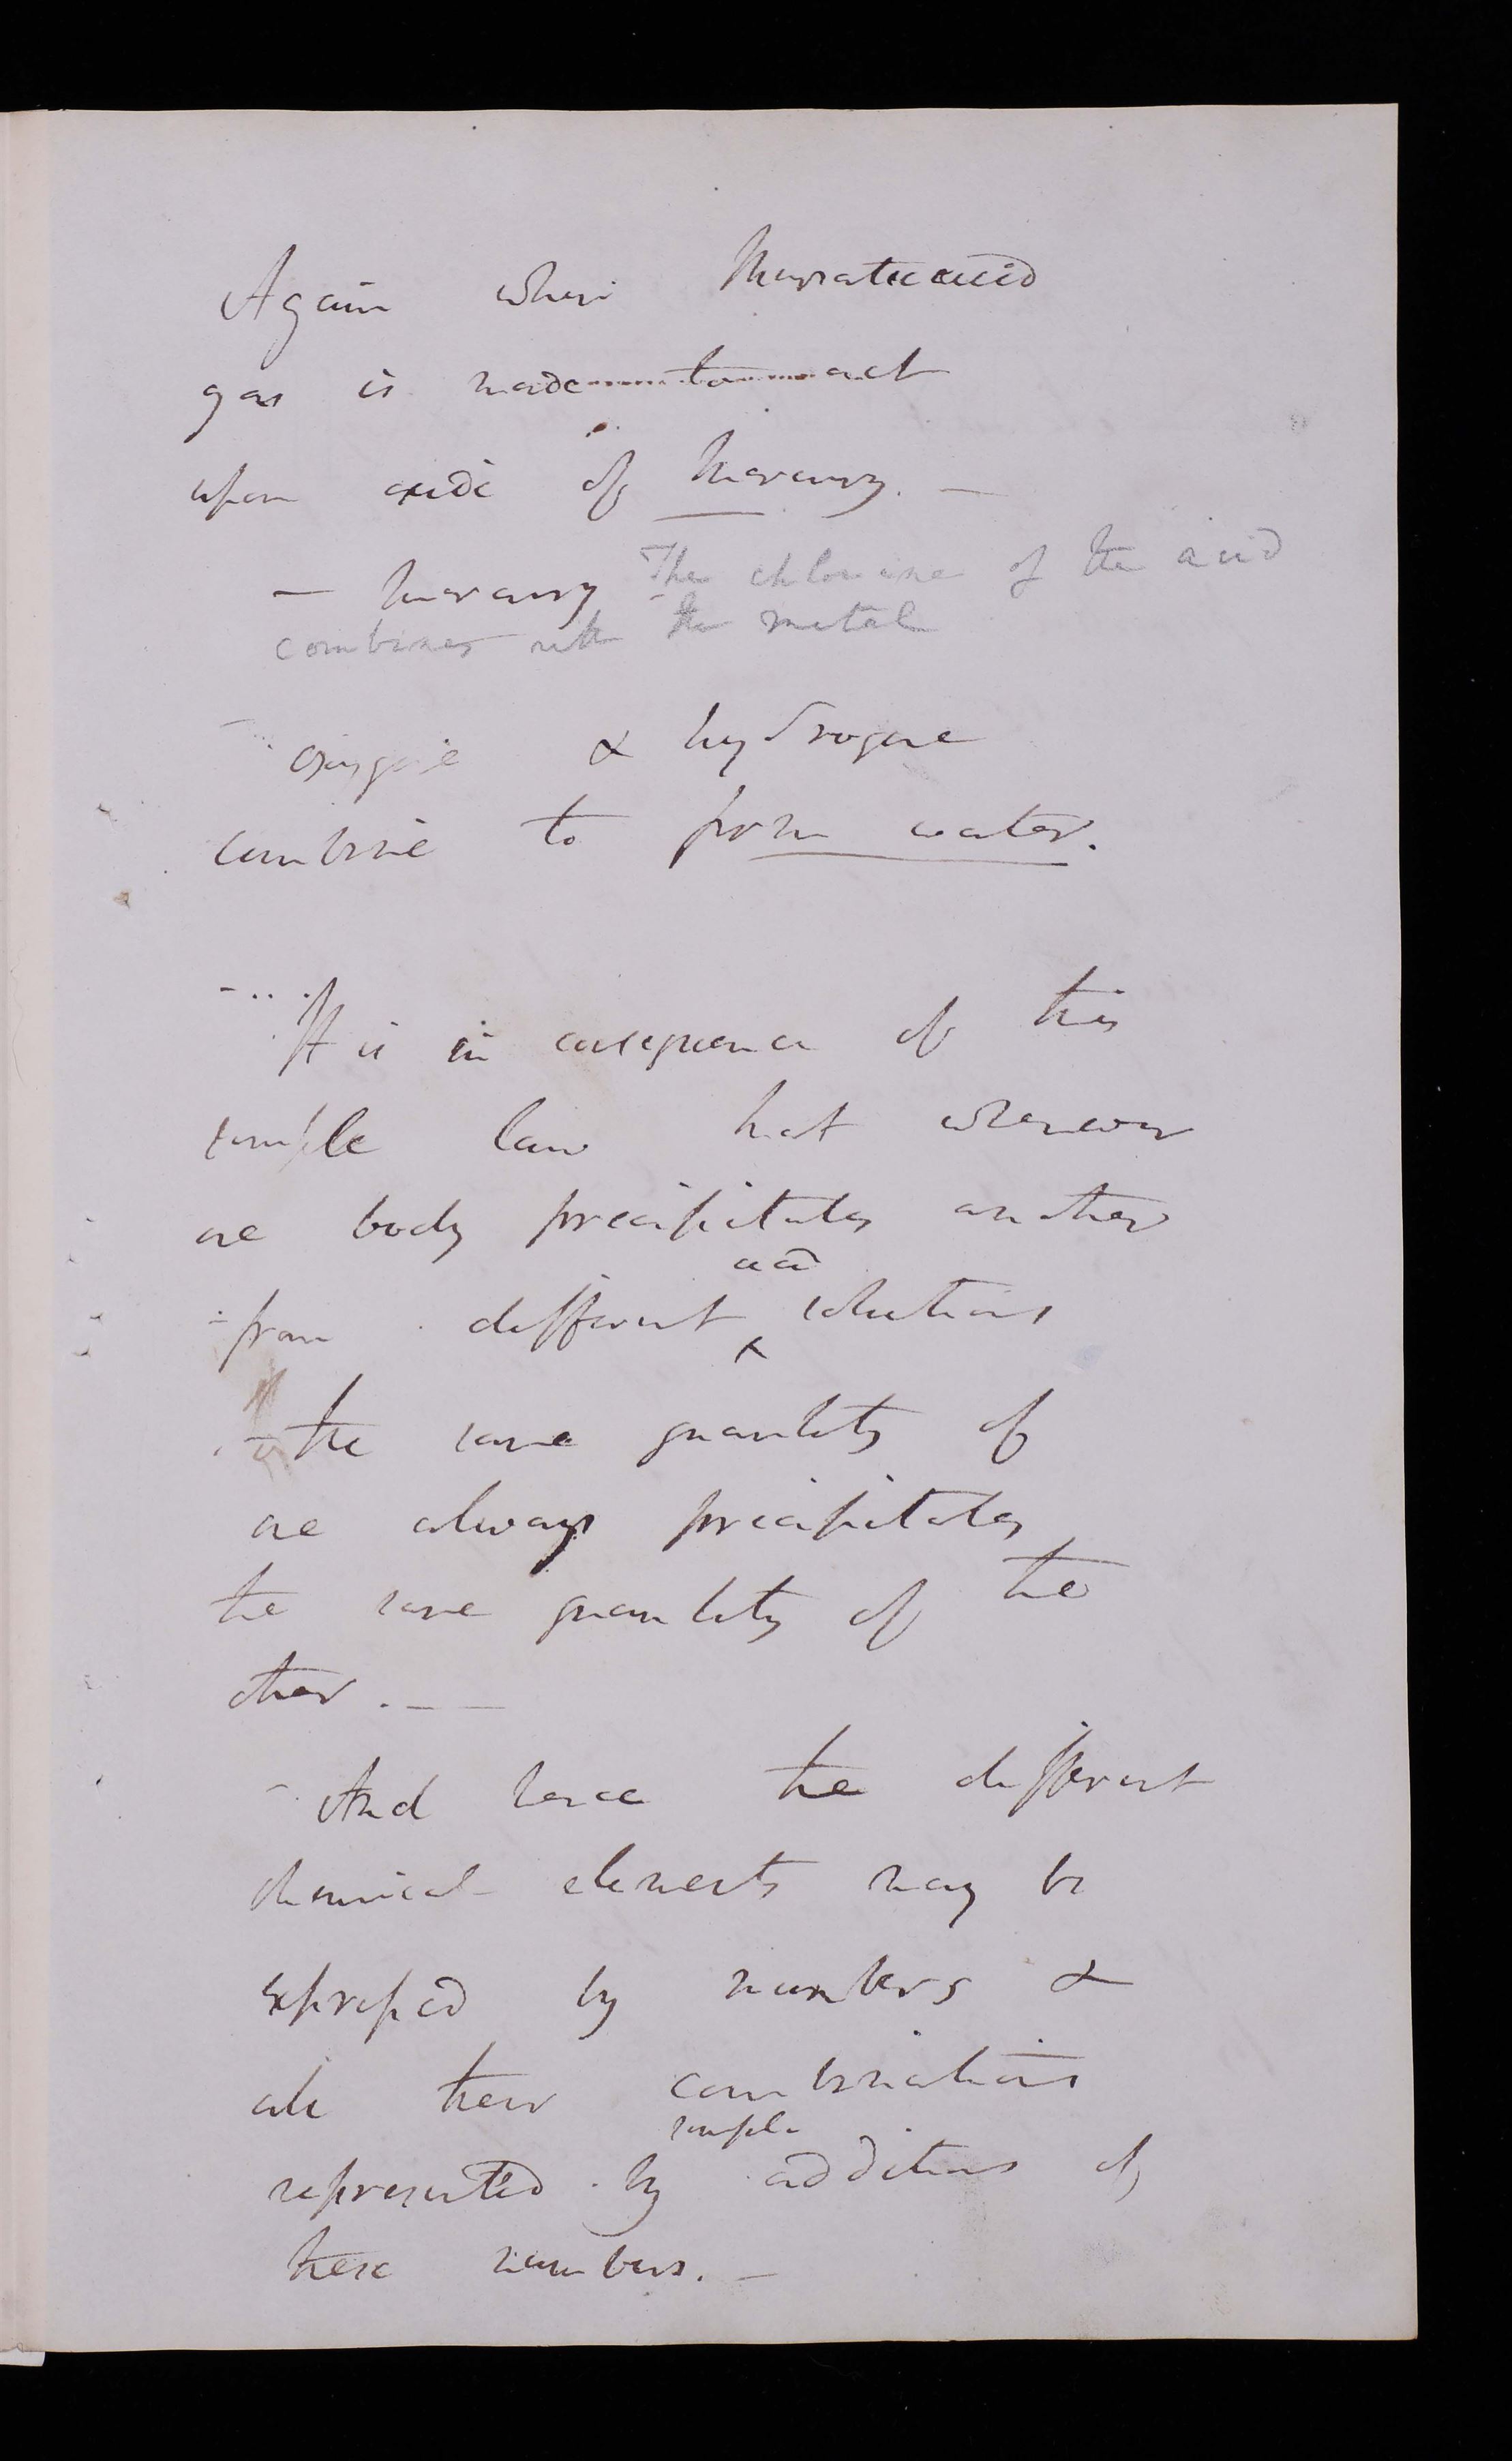 Again when Muriatic acid
gas is made to act
upon oxide of Mercury. —
— Mercury The chlorine of the acid
combines with the metal
oxygene & hydrogene
combine to form water.
It is in consequence of this
simple law that whenever
one body precipitates another
acid
from different solutions
the same quantity of
one always precipitates
the same quantity of the
other. —
And hence the different
chemical elements may be
expressed by numbers &
all their combinations
simple
represented by additions of
these numbers. —